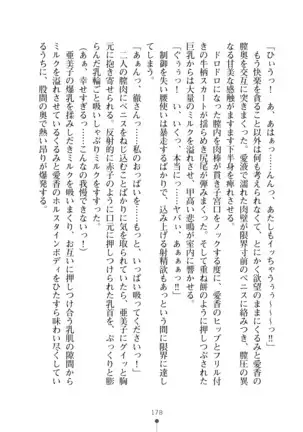 「ひぃうっ！　あ、あはぁっ……んんっ！　あたしもイッちゃうぅ～～～っ！」
もう快楽を貪ること以外はなにも考えられない。とにかく欲望のままにくるみと愛香の
膣奥を交互に突きまくった。愛液で潤った肉壁が限界寸前のペニスに絡みつき、膣圧の異
なる甘美な感触がますます下半身を痺れさせてしまう。
ドロドロになった膣内を肉棒が貫き子宮口をノックする度に、愛香のヒップとフリル付
きの牛柄スカートが揺らめき尻尾が弾みまくった。そして重ね餅のように押しつぶされた
巨乳からは大量のミルクを溢れさせ、甲高い悲鳴が室内に響かせる。
「ぐぅぅっ！　い、いくっ、本当に……ヤバい、あぁぁぁっ！」
制御を失った腰使いは暴走するばかりで、込み上げる射精欲もあっという間に限界に達
してしまう。
「あぁんっ、徹さんっ、私のおっぱいを……もっと、いっぱい吸ってくださいっ！」
二人の膣肉にペニスをねじ込むことばかりに気を取られていると、亜美子にグイッと胸
元に抱き寄せられた。反射的に赤子のように口元に押しつけられた乳首を、ぷっくりと膨
らんだ乳輪ごと吸いしゃぶりミルクをすする。
「あぁ、幸せすぎるっ……もう我慢できないっ！」
亜美子の爆乳を貪るままミルクを吸いまくり、お互いに押しつけ合う乳肌の隙間から
ミルクを溢れさせているくるみと愛香のホルスタインボディをひたすら味わい尽くす。す
るうちに、股間の奥で熱い昂りが爆発する。
178